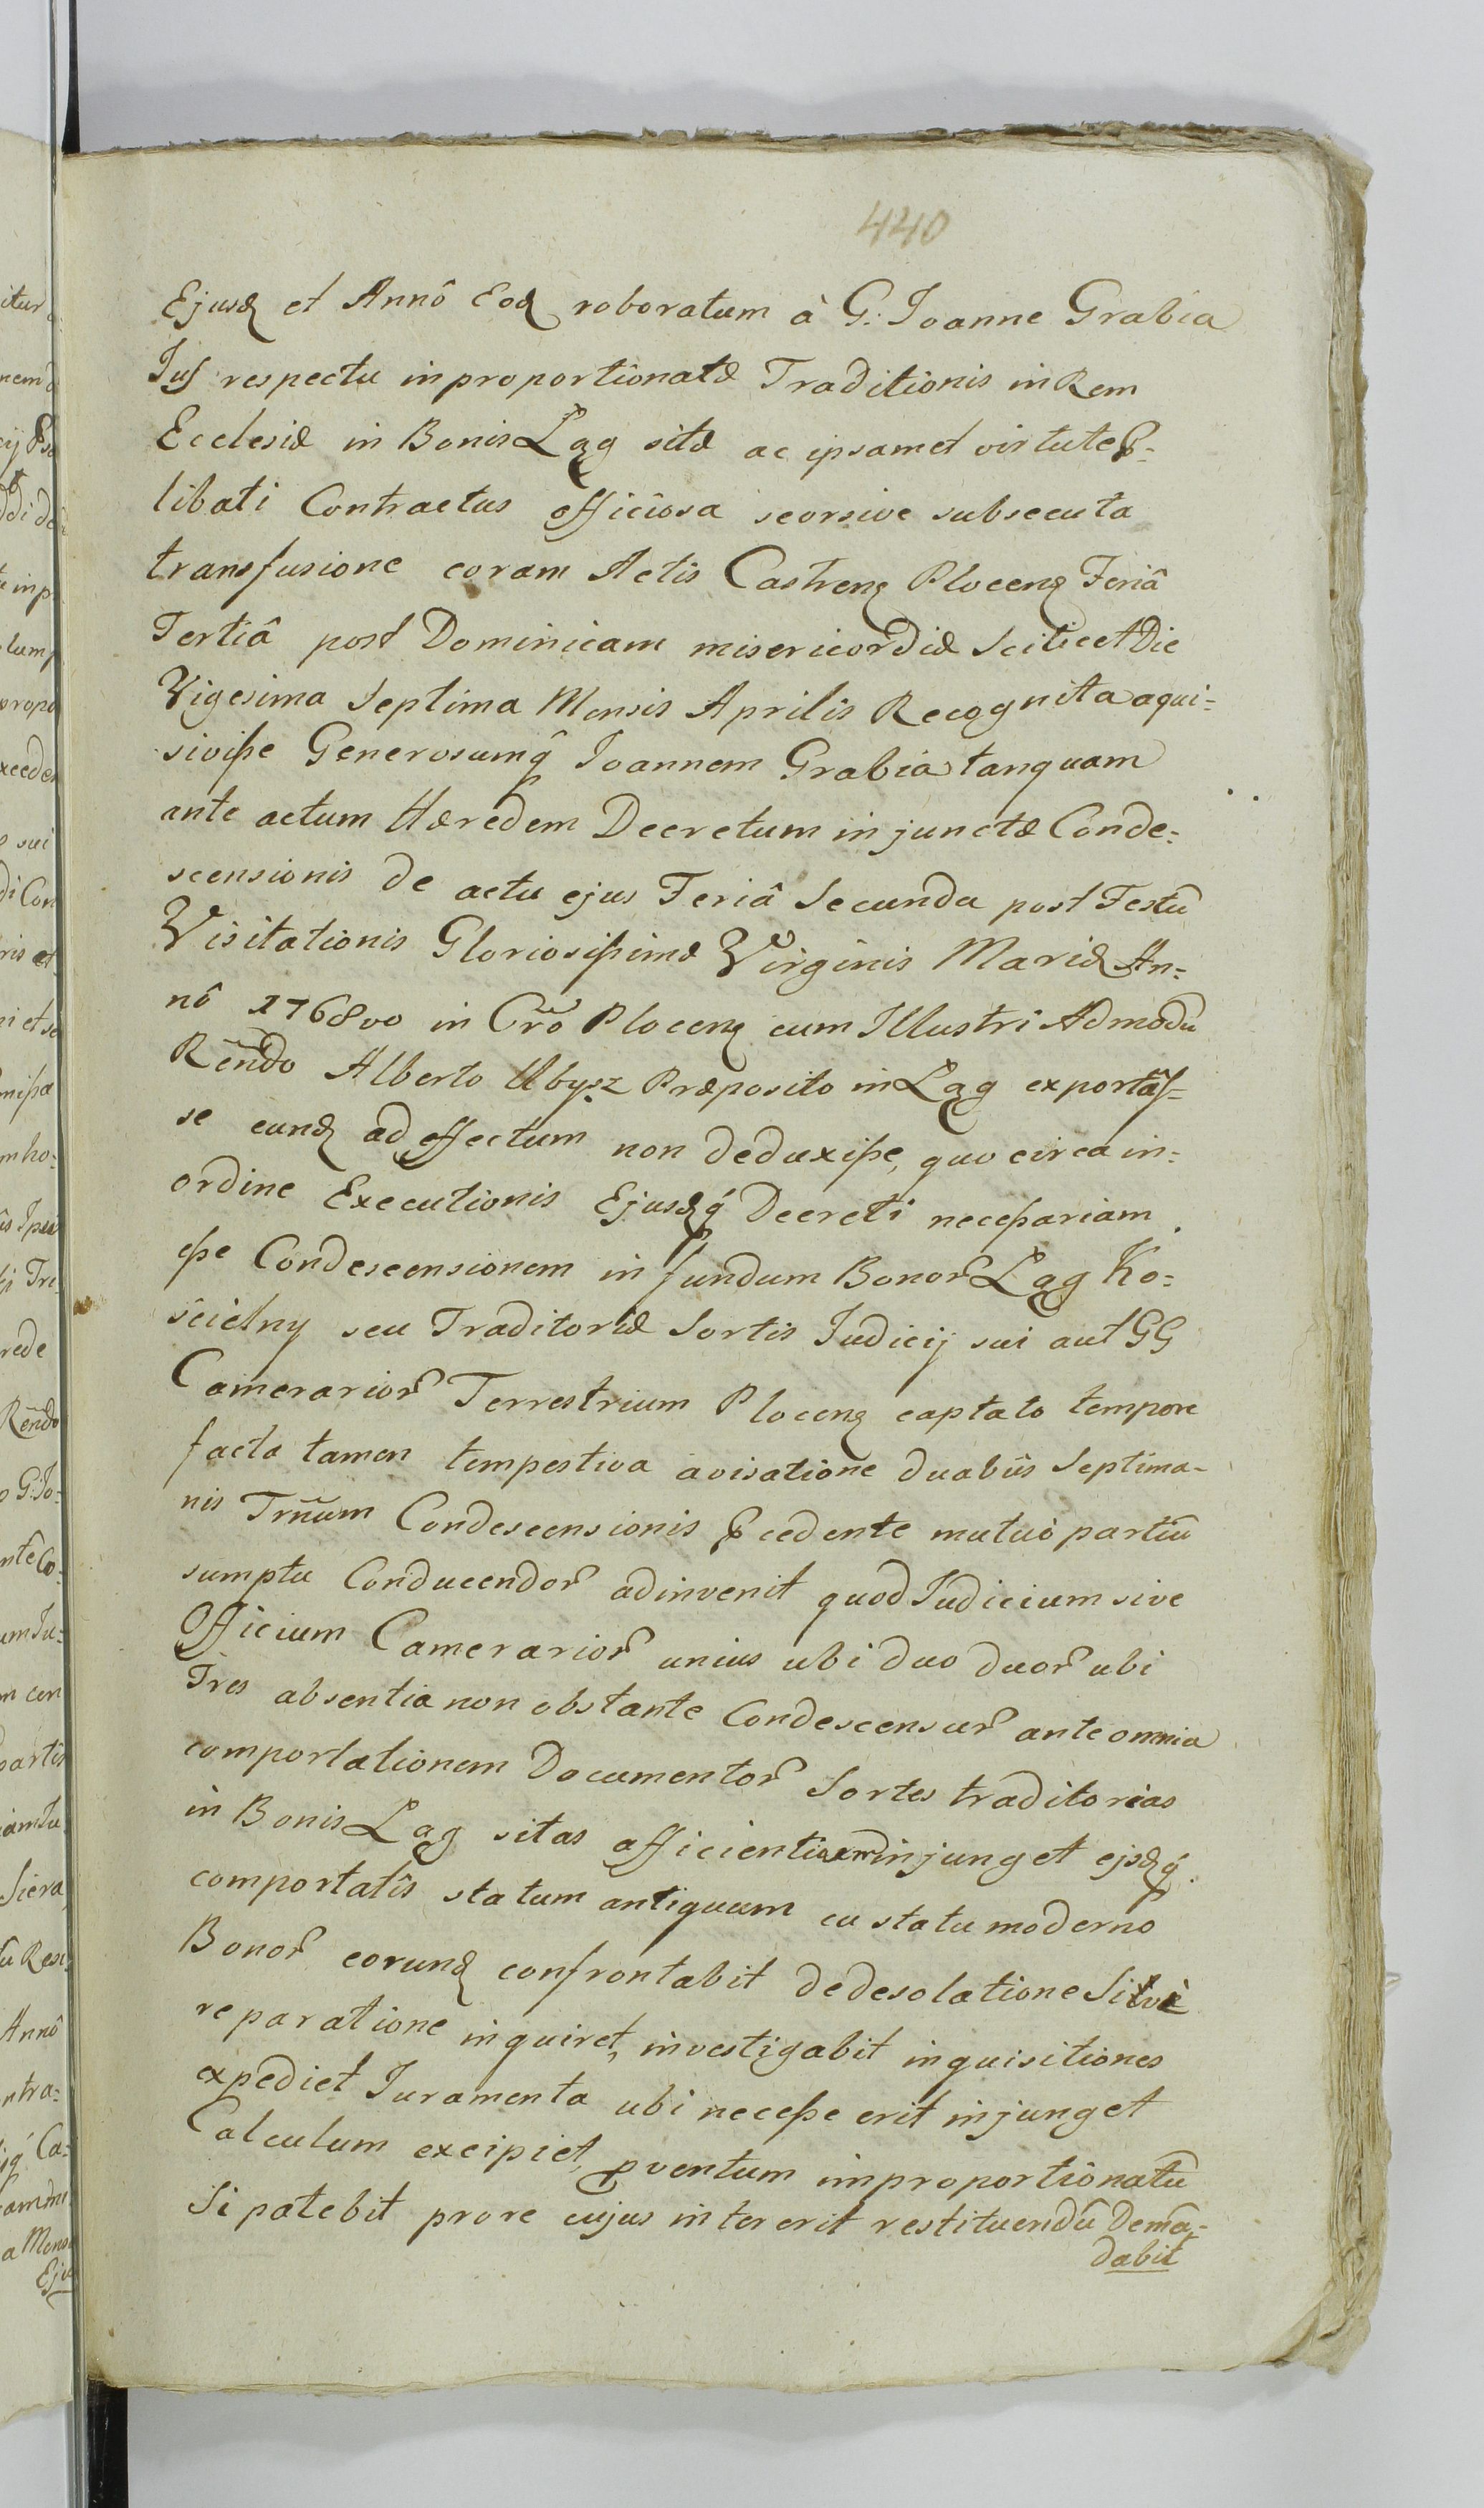 440
Ejusdꝫ et Annô Eodꝫ roboratum à G: Joanne Grabia
Jus respectu inproportionatæ Traditionis in Rem
Ecclesiæ in Bonis Łąg sitæ ac ipsamet virtute præ=
libati Contractus officiosa seorsive subsecuta
transfusione coram Actis Castrenꝫ Plocenꝫ Feriâ
Tertiâ post Dominicam misericordiæ Scilicet Die
Vigesima Septima Mensis Aprilis Recognita aqui=
siviße Generosumq̂ Joannem Grabia tanquam
ante actum Hæredem Decretum injunctæ Conde=
scensionis de actu ejus Feriâ Secunda post Festū
Visitationis Glorioſißimæ Virginis Mariæ An=
nô 1768vo in Cŕo Plocenꝫ cum Illustri Admodū
Rendo Alberto Ubysz Præposito in Łąg exportâs=
se eundꝫ ad effectum non deduxiße, quo circa in=
ordine Executionis Ejusdꝫq́ Decreti neceßariam
eße Condescensionem in fundum Bonor̃ Łąg Ko=
ścielny seu Traditoriæ Sortis Judicij sui aut GG
Camerarior̃ Terrestrium Plocenꝫ captato tempore
facta tamen tempestiva avisatione duabus Septima-
nis Trñum Condescensionis præcedente mutuô partiū
sumptu Conducendor̃ adinvenit quod Judicium sive
Officium Camerarior̃ unius ubi duo duor̃ ubi
Tres absentia non obstante Condescensur̃ ante omnia
comportationem Documentor̃ Sortes traditorias
in Bonis Łąg sitas afficientium injunget ejsdꝫq́
comportatîs statum antiquum cū statu moderno
Bonor̃ eorundꝫ confrontabit de desolatione Sivè
reparatione inquiret, investigabit inquisitiones
expediet Juramenta ubi neceße erit injunget
Calculum excipiet, pventum improportionatū
Si patebit pro re cujus intererit restituendū Demā=
dabit